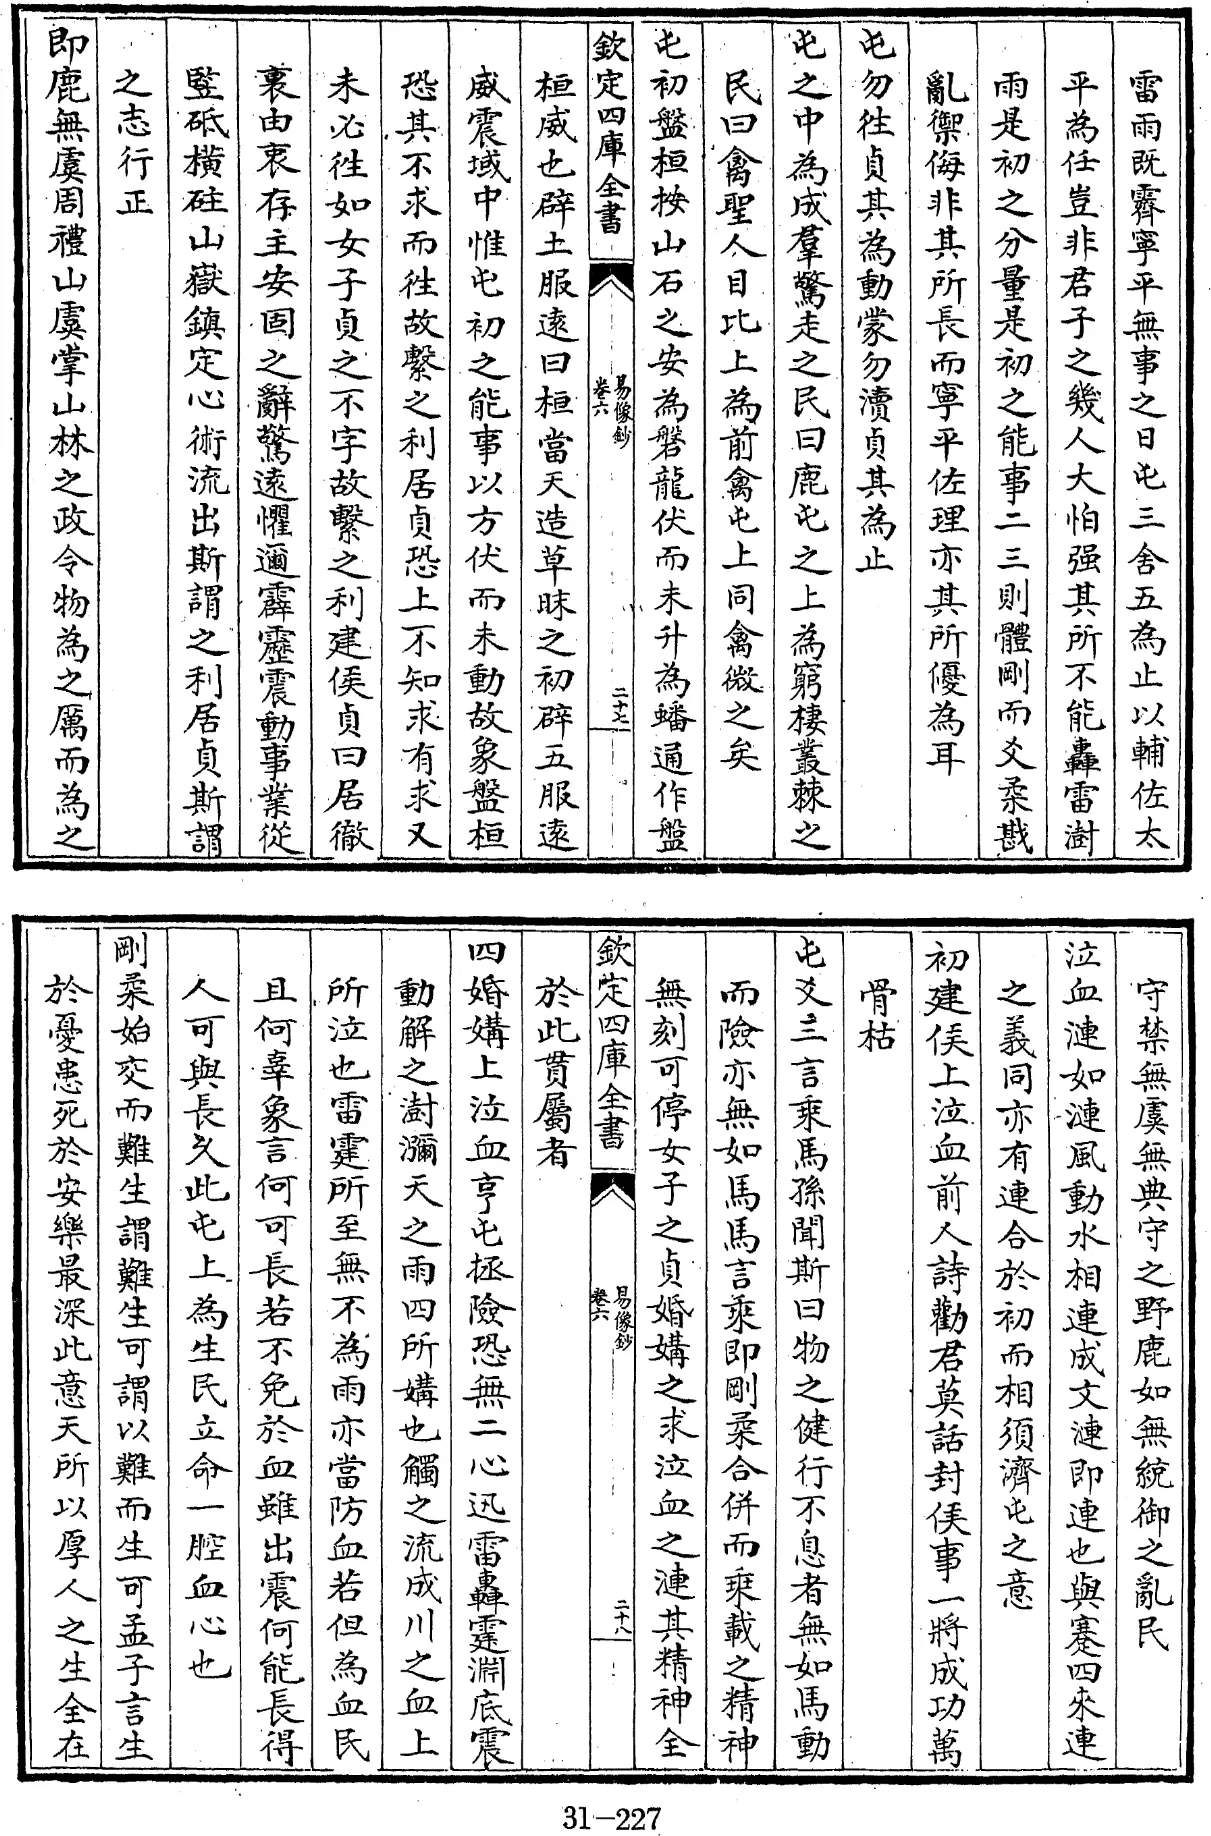 雷雨既霽寧平無事之日屯三舍五為止以輔佐太
平為任豈非君子之幾人大怕强其所不能轟雷澍
雨是初之分量是初之能事二三則體剛而爻柔戡
亂禦侮非其所長而寧平佐理亦其所優為耳
屯勿徃貞其為動蒙勿瀆貞其為止
屯之中為成羣驚走之民曰鹿屯之上為窮棲叢棘之
民曰禽聖人目比上為前禽屯上同禽微之矣
屯初盤桓按山石之安為磐龍伏而未升為蟠通作盤
欽定四庫全書
易像鈔
卷六
二十七
桓威也辟土服逺曰桓當天造草昧之初辟五服逺
威震域中惟屯初之能事以方伏而未動故象盤桓
恐其不求而徃故繫之利居貞恐上不知求有求又
未必徃如女子貞之不字故繫之利建侯貞曰居徹
裏由衷存主安固之辭驚逺懼邇霹靂震動事業從
監砥橫硅山嶽鎮定心術流出斯謂之利居貞斯謂
之志行正
即鹿無虞周禮山虞掌山林之政令物為之厲而為之
守禁無虞無典守之野鹿如無統御之亂民
泣血漣如漣風動水相連成文漣即連也與蹇四來連
之義同亦有連合於初而相須濟屯之意
初建侯上泣血前人詩勸君莫話封侯事一將成功萬
骨枯
屯爻三言乘馬孫聞斯曰物之健行不息者無如馬動
而險亦無如馬馬言乘即剛柔合併而乘載之精神
無刻可停女子之貞婚媾之求泣血之漣其精神全
欽定四庫全書
易像鈔
卷六
二十八
於此貫屬者
四婚媾上泣血亨屯拯險恐無二心迅雷轟霆淵底震
動解之澍瀰天之雨四所媾也觸之流成川之血上
所泣也雷霆所至無不為雨亦當防血若但為血民
且何辜象言何可長若不免於血雖出震何能長得
人可與長久此屯上為生民立命一腔血心也
剛柔始交而難生謂難生可謂以難而生可孟子言生
於憂患死於安樂最深此意天所以厚人之生全在
31-227